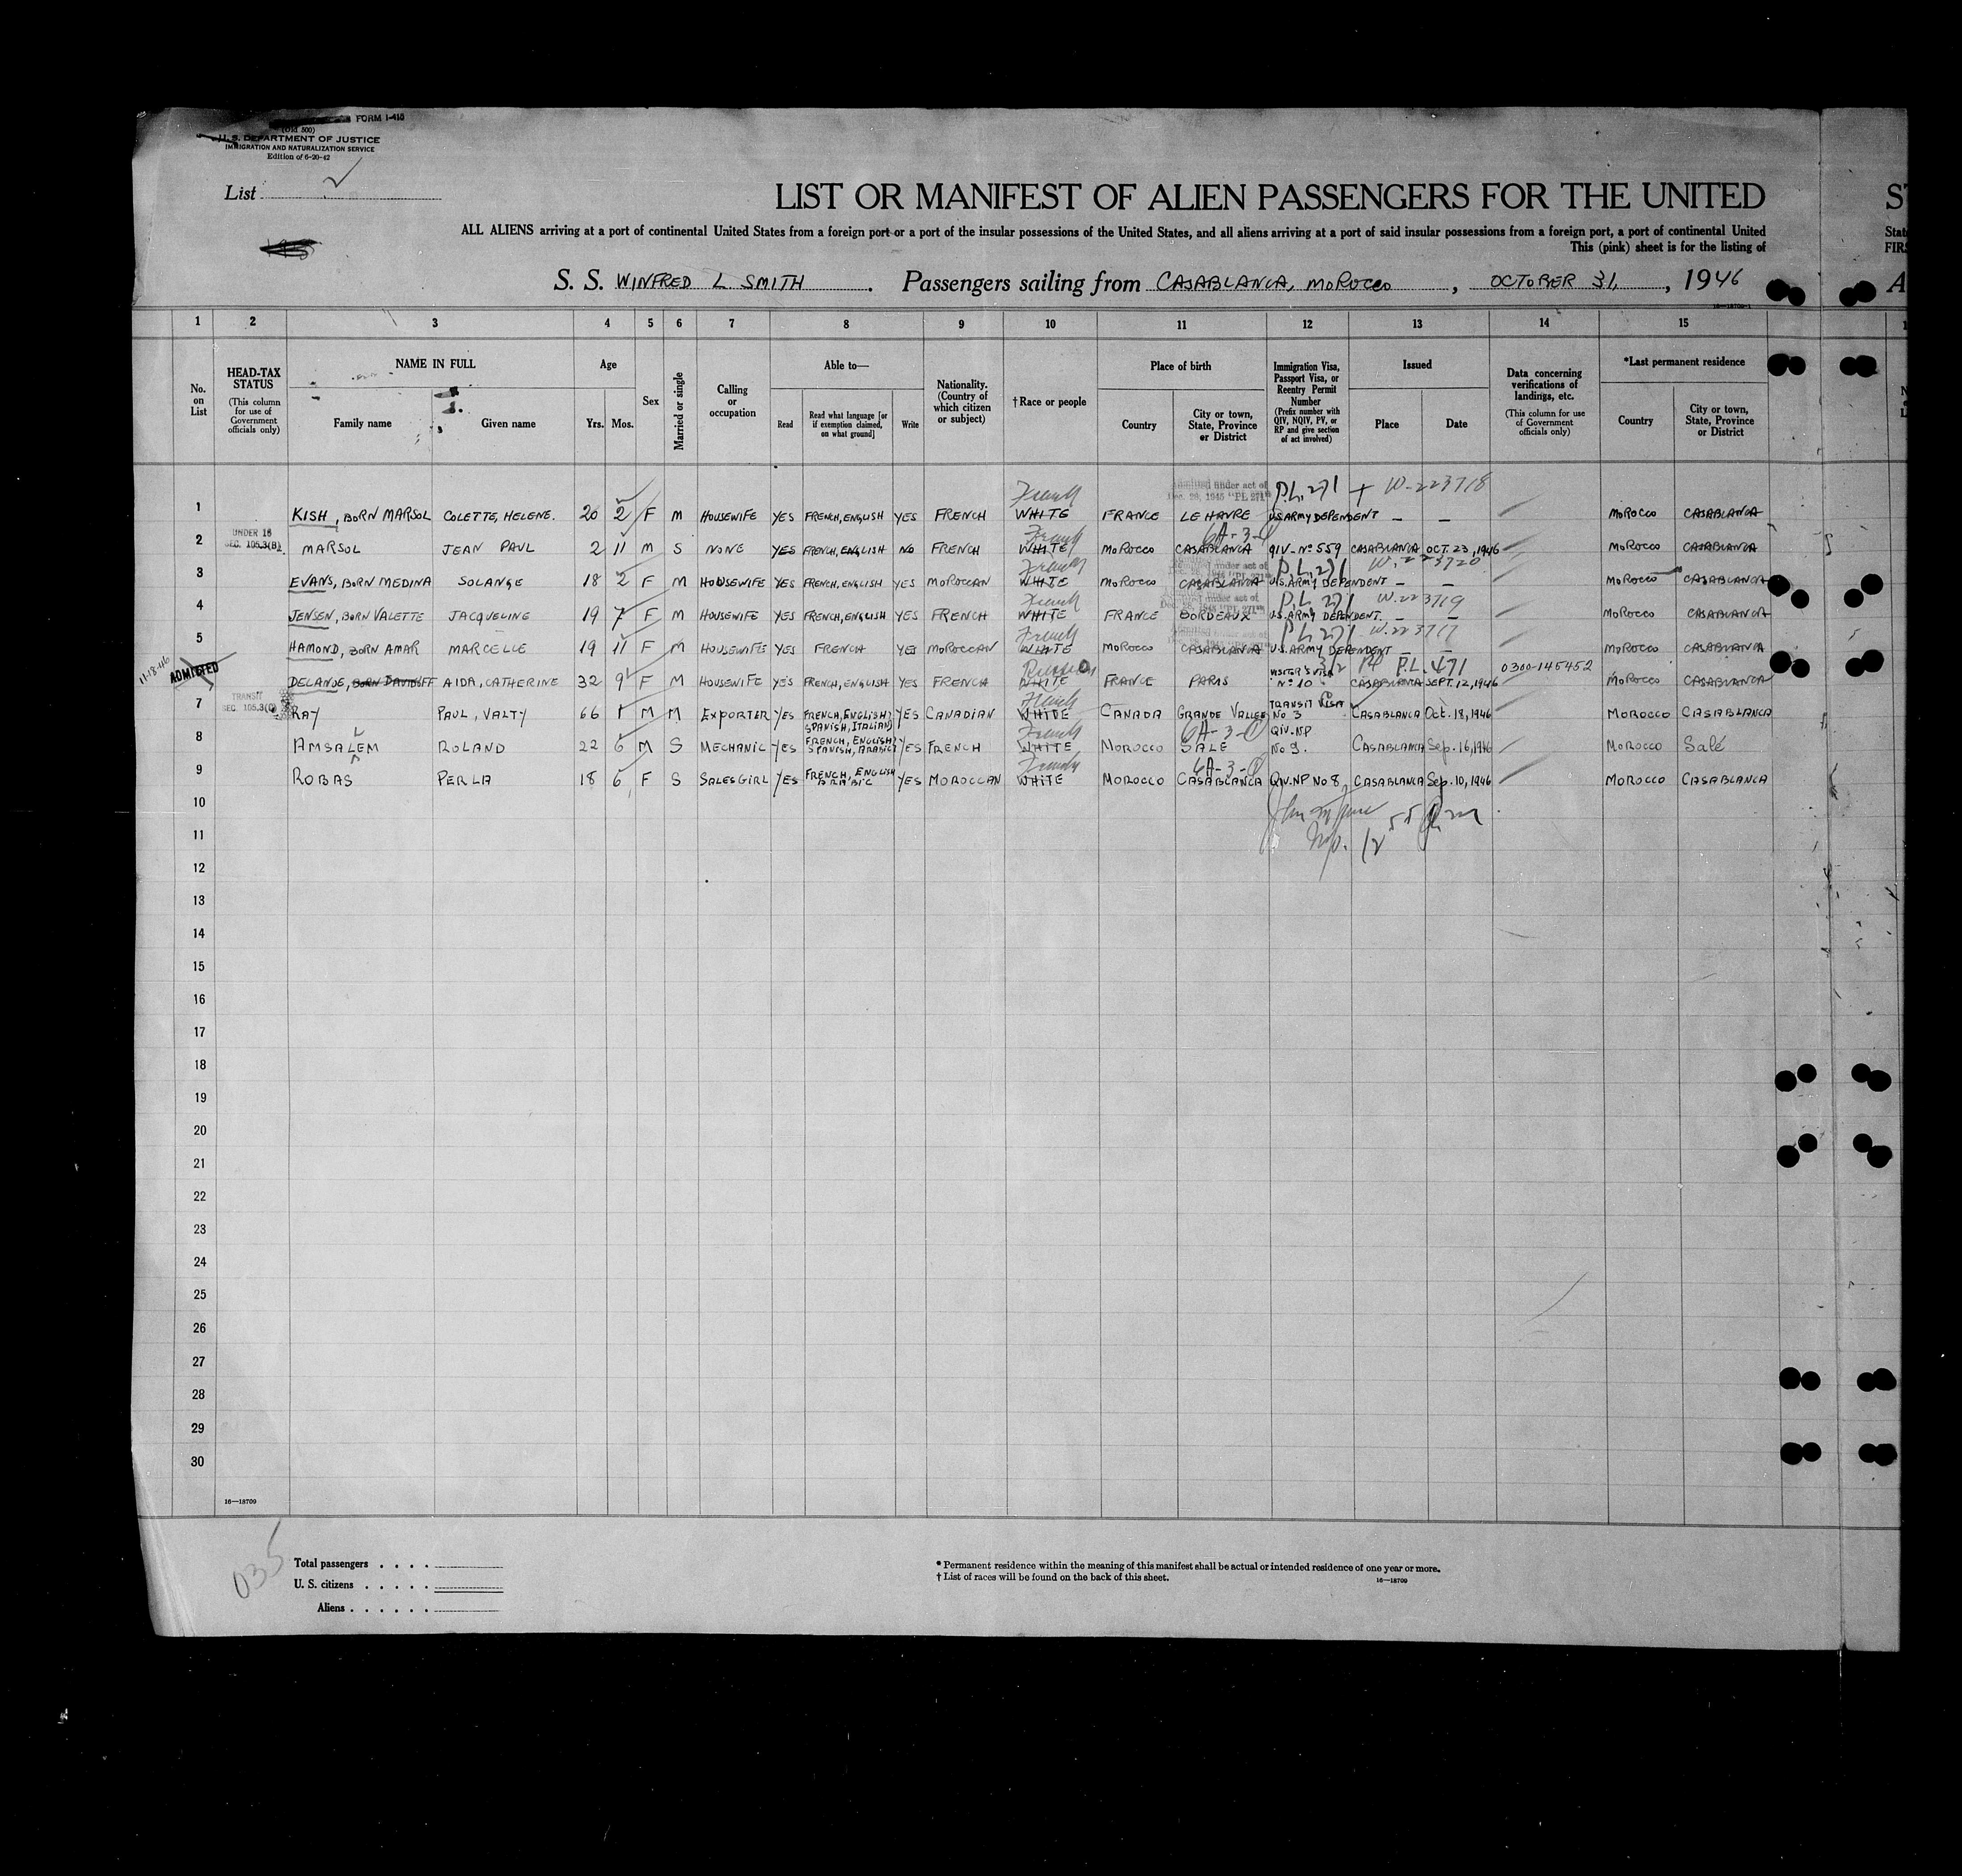 FORM I-415
(Old 500)
U. S. DEPARTMENT OF JUSTICE
IMMIGRATION AND NATURALIZATION SERVICE
Edition of 6-20-42
List 2
LIST OR MANIFEST OF ALIEN PASSENGERS FOR THE UNITED
ALL ALIENS arriving at a port of continental United States from a foreign port or a port of the insular possessions of the United States, and all aliens arriving at a port of said insular possessions from a foreign port, a port of continental United
This (pink) sheet is for the listing of
S. S. WINFRED L SMITH. Passengers sailing from CASABLANCA, MOROCCO, OCTOBER 31, 1946
1 2 3 4 5 6 7 8 9 10 11 12 13 14 15
No. on List
HEAD-TAX STATUS (This column for use of Government officials only)
NAME IN FULL Family name Given name
Age Yrs. Mos.
Sex
Married or single
Calling or occupation
Able to— Read Read what language [or if exemption claimed, on what ground] Write
Nationality. (Country of which citizen or subject)
†Race or people
Place of birth Country City or town, State, Province or District
Immigration Visa, Passport Visa, or Reentry Permit Number (Prefix number with QIV, NQIV, PV, or RP and give section of act involved)
Issued Place Date
Data concerning verifications of landings, etc. (This column for use of Government officials only)
*Last permanent residence Country City or town, State, Province or District
French Admitted under act of Dec. 28, 1945 "PL 271" P.L. 271 + W-223718
1 KISH, BORN MARSOL COLETTE, HELENE. 20 2 F M HOUSEWIFE YES FRENCH, ENGLISH YES FRENCH WHITE FRANCE LE HAVRE U.S. ARMY DEPENDENT — — MOROCCO CASABLANCA
UNDER 16 SEC. 105.3(B) French 6A-3-
2 MARSOL JEAN PAUL 2 11 M S NONE YES FRENCH, ENGLISH NO FRENCH WHITE MOROCCO CASABLANCA QIV-Nº 559 CASABLANCA OCT. 23, 1946 MOROCCO CASABLANCA
French P.L. 271 W-223720
3 EVANS, BORN MEDINA SOLANGE 18 2 F M HOUSEWIFE YES FRENCH, ENGLISH YES MOROCCAN WHITE MOROCCO CASABLANCA U.S. ARMY DEPENDENT — — MOROCCO CASABLANCA
French P.L. 271 W-223719
4 JENSEN, BORN VALETTE JACQUELINE 19 7 F M HOUSEWIFE YES FRENCH, ENGLISH YES FRENCH WHITE FRANCE BORDEAUX U.S. ARMY DEPENDENT. — — MOROCCO CASABLANCA
French P.L. 271 W-223717
5 HAMOND, BORN AMAR MARCELLE 19 11 F M HOUSEWIFE YES FRENCH YES MOROCCAN WHITE MOROCCO CASABLANCA U.S. ARMY DEPENDENT — — MOROCCO CASABLANCA
11-18-46 ADMITTED Russian 3/2 P.L. 471 0300-145452
DELANOE, BORN DAVIDOFF AIDA, CATHERINE 32 9 F M HOUSEWIFE YES FRENCH, ENGLISH YES FRENCH WHITE FRANCE PARIS VISITER'S VISA Nº 10 CASABLANCA SEPT. 12, 1946 MOROCCO CASABLANCA
TRANSIT SEC. 105.3(C) French
7 RAY PAUL, VALTY 66 1 M M EXPORTER YES FRENCH, ENGLISH, SPANISH, ITALIAN YES CANADIAN WHITE CANADA GRANDE VALLEE TRANSIT VISA No 3 CASABLANCA Oct. 18, 1946 MOROCCO CASABLANCA
French 6A-3-
8 AMSALEM ROLAND 22 6 M S MECHANIC YES FRENCH, ENGLISH, SPANISH, ARABIC YES FRENCH WHITE MOROCCO SALE QIV-NP No 9. CASABLANCA Sep. 16, 1946 MOROCCO Salé
French 6A-3-
9 ROBAS PERLA 18 6 F S SALES GIRL YES FRENCH, ENGLISH ARABIC YES MOROCCAN WHITE MOROCCO CASABLANCA QIV-NP No 8 CASABLANCA Sep. 10, 1946 MOROCCO CASABLANCA
10
11
12
13
14
15
16
17
18
19
20
21
22
23
24
25
26
27
28
29
30
16—18709
035
Total passengers
U. S. citizens
Aliens
* Permanent residence within the meaning of this manifest shall be actual or intended residence of one year or more.
† List of races will be found on the back of this sheet.
16—18709